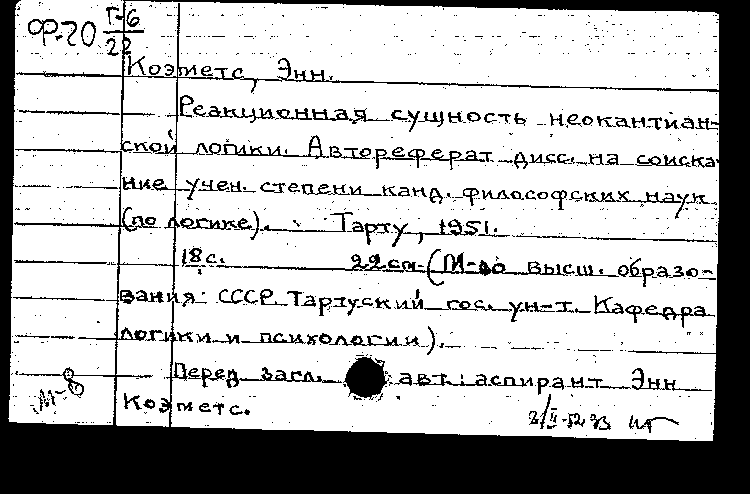 Ф-20 Г-6
22
Коэметс, Энн.
Реакционная сущность неокантиан-
ской логики. Автореферат дисс. на соиска-
ние учен. степени канд. философских наук
(по логике). Тарту, 1951.
18 с. 22 см. (М-во высш. образо-
вания СССР. Тартуский гос. ун-т. Кафедра
логики и психологии).
Перед загл. авт.: аспирант Энн
Коэметс.